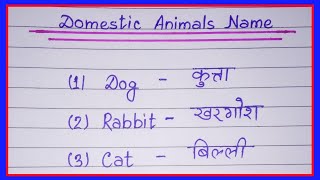 Domestic Animals Name
(1) Dog - कुत्ता
(2) Rabbit - खरगोश
(3) Cat - बिल्ली